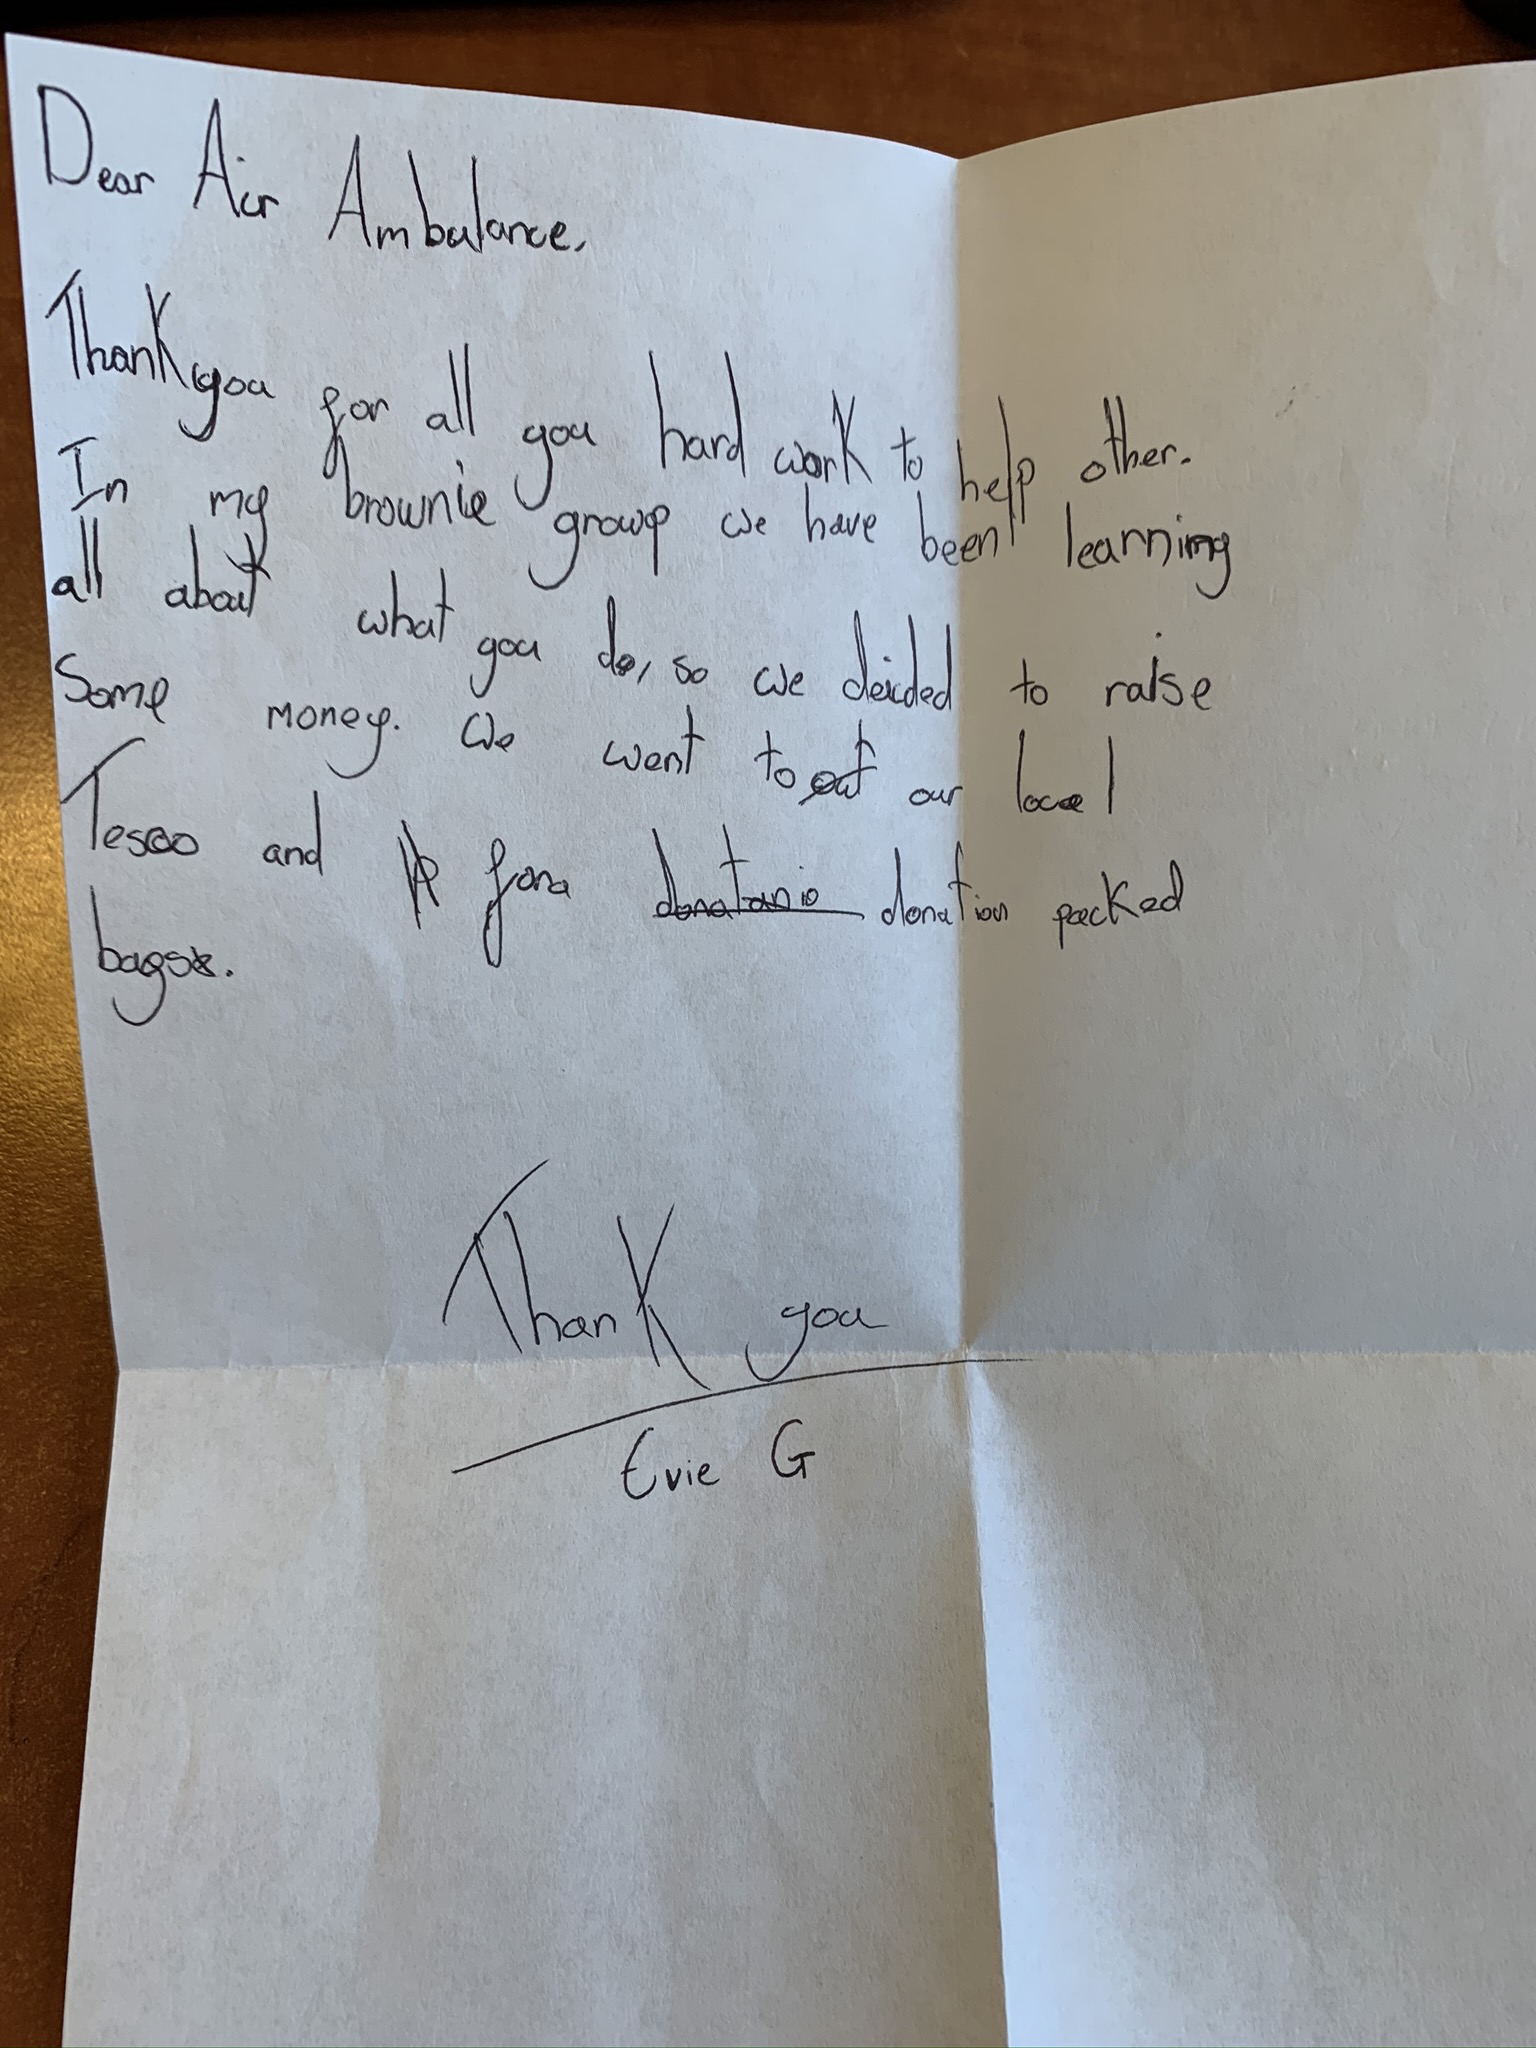 Dear Air Ambulance,
Thank you for all you hard work to help other.
In my brownie group we have been learning
all about what you do, so we deicded to raise
Some money. We went to out our local
Tesco and for a donatanio donation packed
bags.
Thank you
Evie G